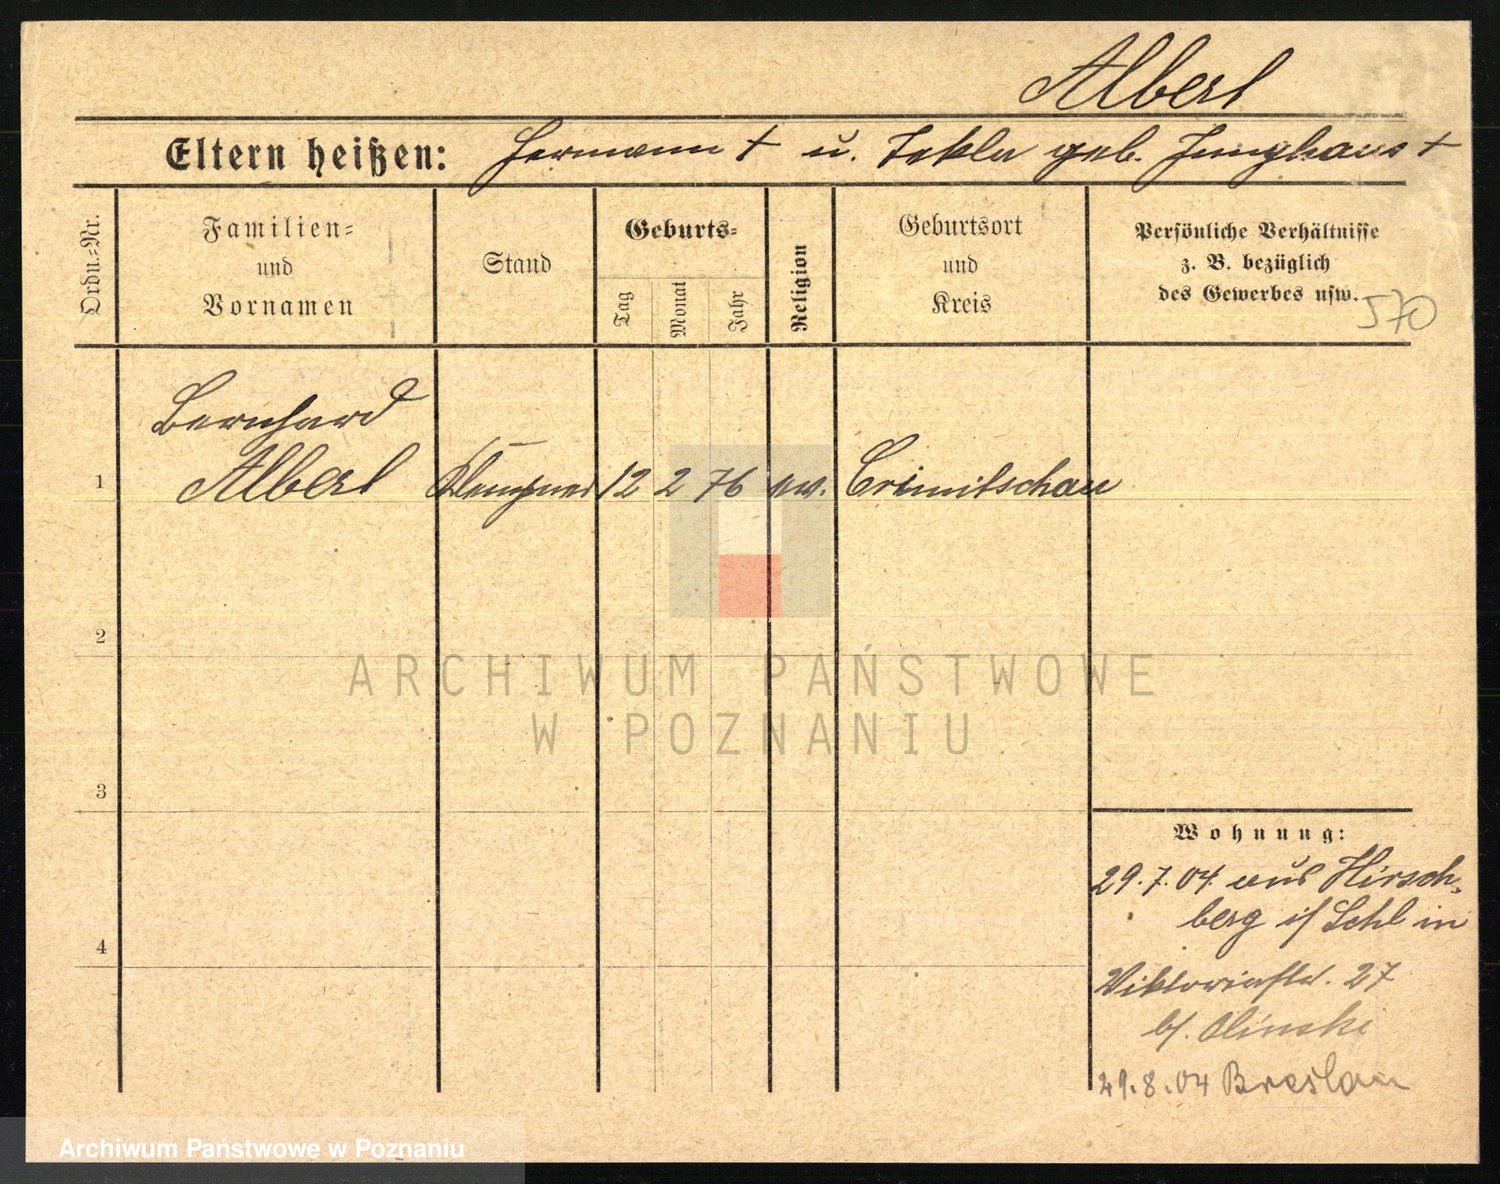 Albert
Eltern heißen: Hermann † u. Tekla geb. Junghans †
Ordn.-Nr.
Familien-
und
Vornamen
Stand
Geburts-
Tag
Monat
Jahr
Religion
Geburtsort
und
Kreis
Persönliche Verhältnisse
z. B. bezüglich
des Gewerbes usw.
570
Bernhard
1 Albert Klempner 12 2 76 ev. Crimitschau
2
3
4
ARCHIWUM PAŃSTWOWE
W POZNANIU
Wohnung:
29.7.04 aus Hirsch-
berg i/ Schl in
Viktoriastr. 27
b/. Olinski
29.8.04 Breslau
Archiwum Państwowe w Poznaniu